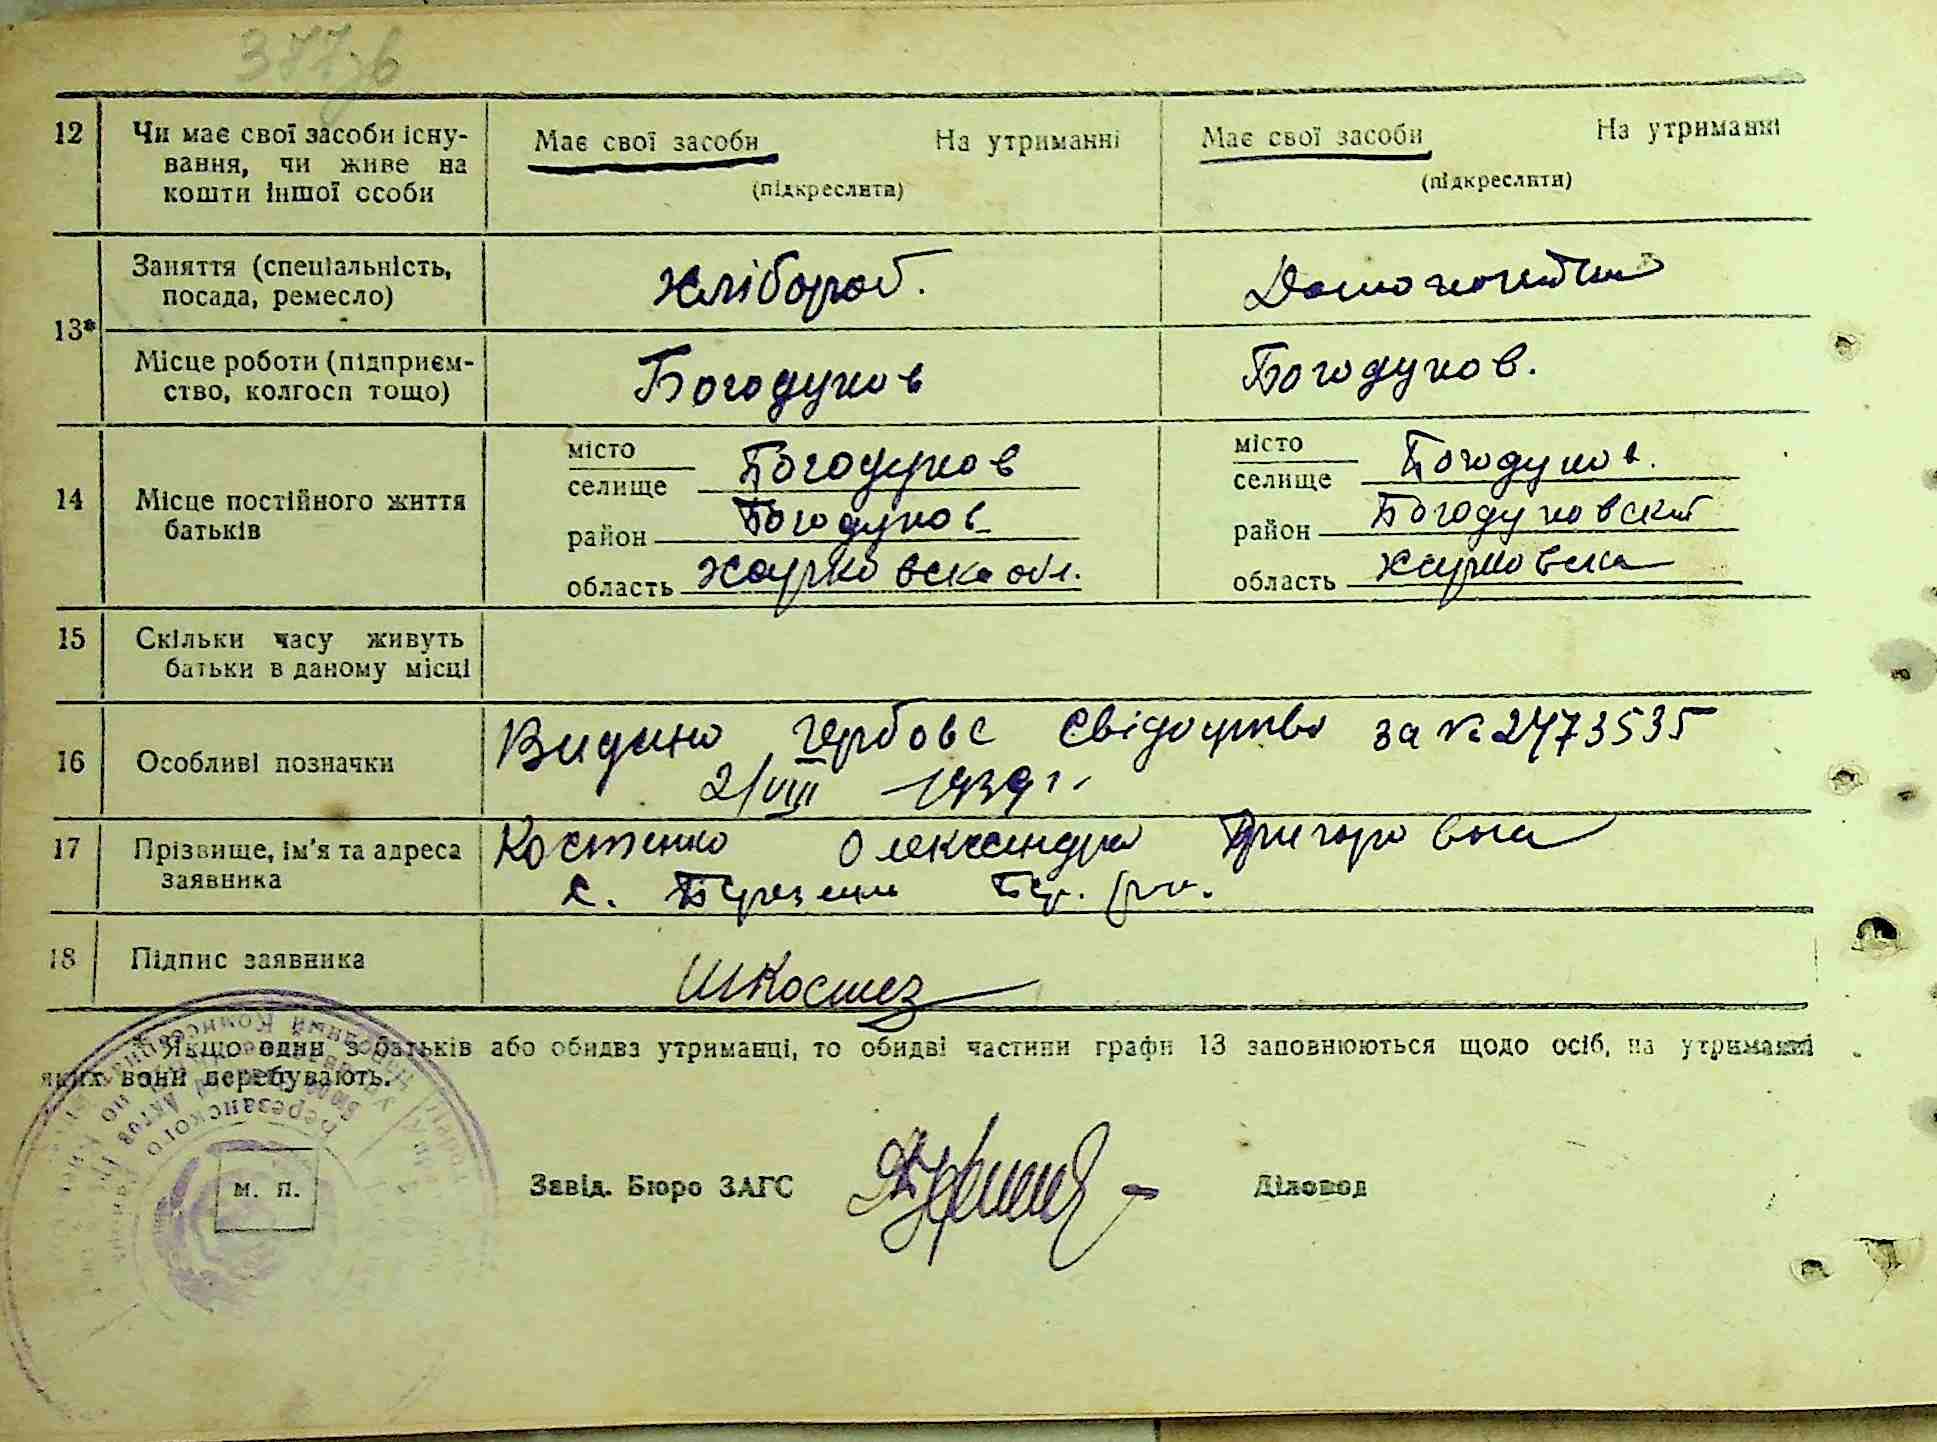 377 зв
12 Чи має свої засоби існу-
вання, чи живе на
кошти іншої особи
Має свої засоби На утриманні
(підкреслити)
Має свої засоби На утриманні
(підкреслити)
13*
Заняття (спеціальність,
посада, ремесло)
Хлібороб.
Місце роботи (підприєм-
ство, колгосп тощо)
Богодухов
Богодухов.
14 Місце постійного життя
батьків
місто
селище Богодухов
район Богодухов
область Харковска обл.
місто
селище Богодухов.
район Богодуховский
область Харковска
15 Скільки часу живуть
батьки в даному місці
16 Особливі позначки
Видано гербове свідоцтво за № 2473535
2/VIII 1939 г.
17 Прізвище, ім'я та адреса
заявника
Костенко Олександра Григоровна
с. Березань Бер. р-н.
18 Підпис заявника
* Якщо один з батьків або обидва утриманці, то обидві частини графи 13 заповнюються щодо осіб, на утриманні
яких вони перебувають.
М. П.
Завід. Бюро ЗАГС
Діловод